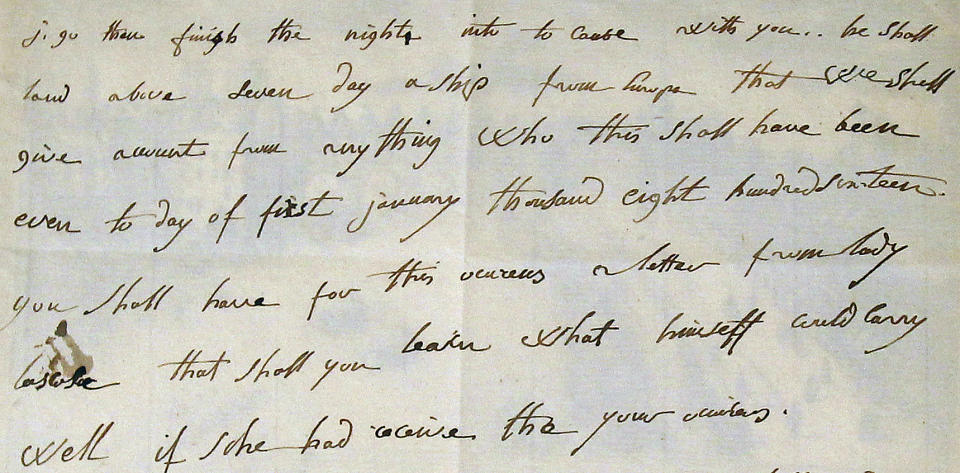 j. go then finish the night, into to cause with you.. he shall
land above seven day a ship from Europe that we shell
give account from any thing who this shall have been
even to day of first january thousand eight hundred sixteen.
you shall have for this ocurens a letter from lady
that shall you learn what himself could carry
well if she had receive the your ocurens.